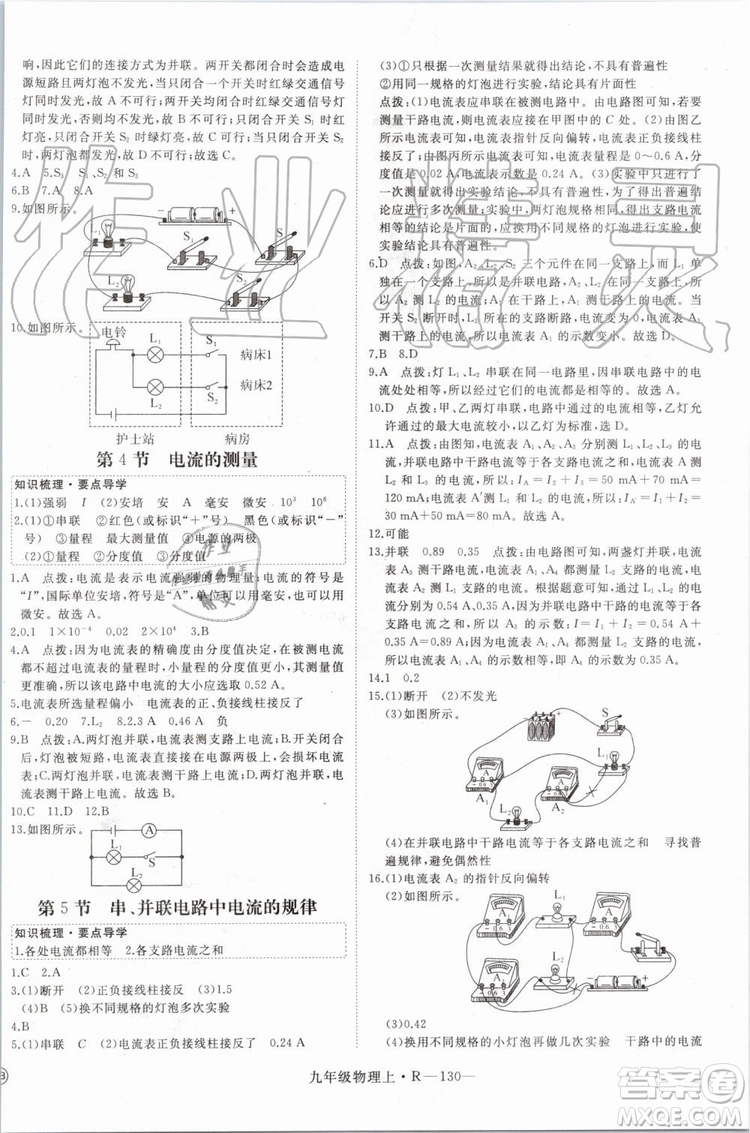 响,因此它们的连接方式为并联。两开关都闭合时会造成电
源短路且两灯泡不发光,当只闭合一个开关时红绿交通信号
灯同时发光,故 B 不可行;两开关均闭合时红绿交通信号灯
同时发光,故 C 不可行;当只闭合开关 S₁ 时红
灯亮,只闭合开关 S₂ 时绿灯亮;开关都闭合时,
两灯泡都发光,故 D 不可行;故选 A。
4.A 5.S₃ S₁、S₂ 和 S₃
6.B 7.A 8.A
9.如图所示。
S₁
S
S₂
L₁
L₂
10.如图所示。
电铃 L₁ S₁ 病床1
L₂ S₂ 病床2
护士站 病房
第 4 节 电流的测量
知识梳理·要点导学
1.(1)强弱 I (2)安培 安 A 毫安 微安 10³ 10⁶
2.(1)①串联 ②红色(或标识“+”号) 黑色(或标识“-”
号) ③量程 最大测量值 ④电源的两极
(2)①量程 ②分度值 ③分度值
1.A 点拨:电流是表示电流强弱的物理量;电流的符号是
“I”,国际单位安培,符号是“A”,单位可以用安、毫安,也可以用
微安。故选 A。
2.0.1 1×10⁻⁴ 0.02 ~ 0.15 3.B
4.A 点拨:因为电流表的精确度由分度值决定,在被测电流
不超过电流表的量程时,小量程的分度值更小,其测量值
更准确,所以该电路中电流的大小应选取 0.52 A。
5.电流表所选量程偏小 电流表的正、负接线柱接反了
6.- 0.20 7.L₂ 8.2.3 A 0.46 A 负
9.B 点拨:A.两灯泡并联,电流表测支路上电流;B.开关闭合
后,灯泡被短路,电流表直接接在电源两极上,会损坏电流
表;C.两灯泡并联,电流表测干路上电流;D.两灯泡并联,电
流表测干路上电流;故选 B。
10.C 11.D 12.B
13.如图所示。
A
L₁ S
L₂
第 5 节 串、并联电路中电流的规律
知识梳理·要点导学
1.各处电流都相等 2.各支路电流之和
1.C 2.A
3.(1)断开 (2)正负接线柱接反 (3)1.5
(4)B (5)换不同规格的灯泡多次实验
4.B
5.(1)串联 C (2)电流表正负接线柱接反了 0.24 A
(3)①只根据一次测量结果就得出结论,不具有普遍性
②用同一规格的灯泡进行实验,结论具有片面性
点拨:(1)电流表应串联在被测电路中。由电路图可知,若要
测量干路上电流,则电流表应接在甲图中的 C 处。(2)由图乙
所示电流表可知,电流表指针反向偏转,电流表正负接线柱
接反了;由图丙所示电流表可知,电流表量程是 0~0.6 A,分
度值是 0.02 A,电流表示数是 0.24 A。(3)①实验中只进行了
一次测量就得出实验结论,实验结论不具有普遍性,为了得出普遍结
论应进行多次实验;②实验中,两灯泡规格相同,则支路电流
相等的结论是片面的,应换用不同规格的灯泡进行多次实验,
使实验结论具有普遍性。
6.D 点拨:如图,A₂、L₂、S₂ 三个元件在同一支路上,而 L₁ 单
独在一个支路上,S₁ 在干路上,A₁ 在干路上,故当
开关 S₂ 断开时,L₂ 所在的支路断路,电流表 A₂ 无示数;A₁
测干路上的电流,所以有示数。故选 D。
7.B 8.D
9.A 点拨:灯 L₁、L₂ 串联在同一电路里,因串联电路中的电
流处处相等,所以它们的电流都是相等的。故选 A。
10.D 点拨:甲、乙两灯串联,电路中通过的电流相等,乙灯允
许通过的最大电流较小,应以它为准。
11.A 点拨:由图知,电流表 A₁、A₂、A₃ 分别测 L₁、L₂
L₃ 支路电流之和,由此可知:I₁ = 50 mA+70 mA=
120 mA;电流表 A 测干路电流,所以 I_A = I₁ + I₂ = 120 mA+
30 mA=150 mA;故选 A。
12.可能
13.并联 0.89 0.35 点拨:由电路图可知,两盏灯并联,电流
电流表
流分别为 0.35 A 和 0.54 A
,所以 A₁ 的示数为:
0.54 A+0.35 A=0.89 A
表测干路电流,电流表 A₁、A₄ 的示数相等,故 A₄ 示数为
0.35 A。
14.1 0.2
15.(1)断开 (2)不发光
(3)如图所示。
S
L₁
L₂
A₁
A₂
(4)在并联电路中干路电流等于各支路电流之和 寻找普
遍规律,避免偶然性
16.(1)电流表 A₂ 的指针反向偏转
(2)如图所示。
L₁
L₂
(3)0.42
(4)换用不同规格的小灯泡再次实验 干路中的电流
等于各支路电流之和
九年级物理上·R—130—
作业精灵
作业精灵
精灵
答案圈
MXQE.COM